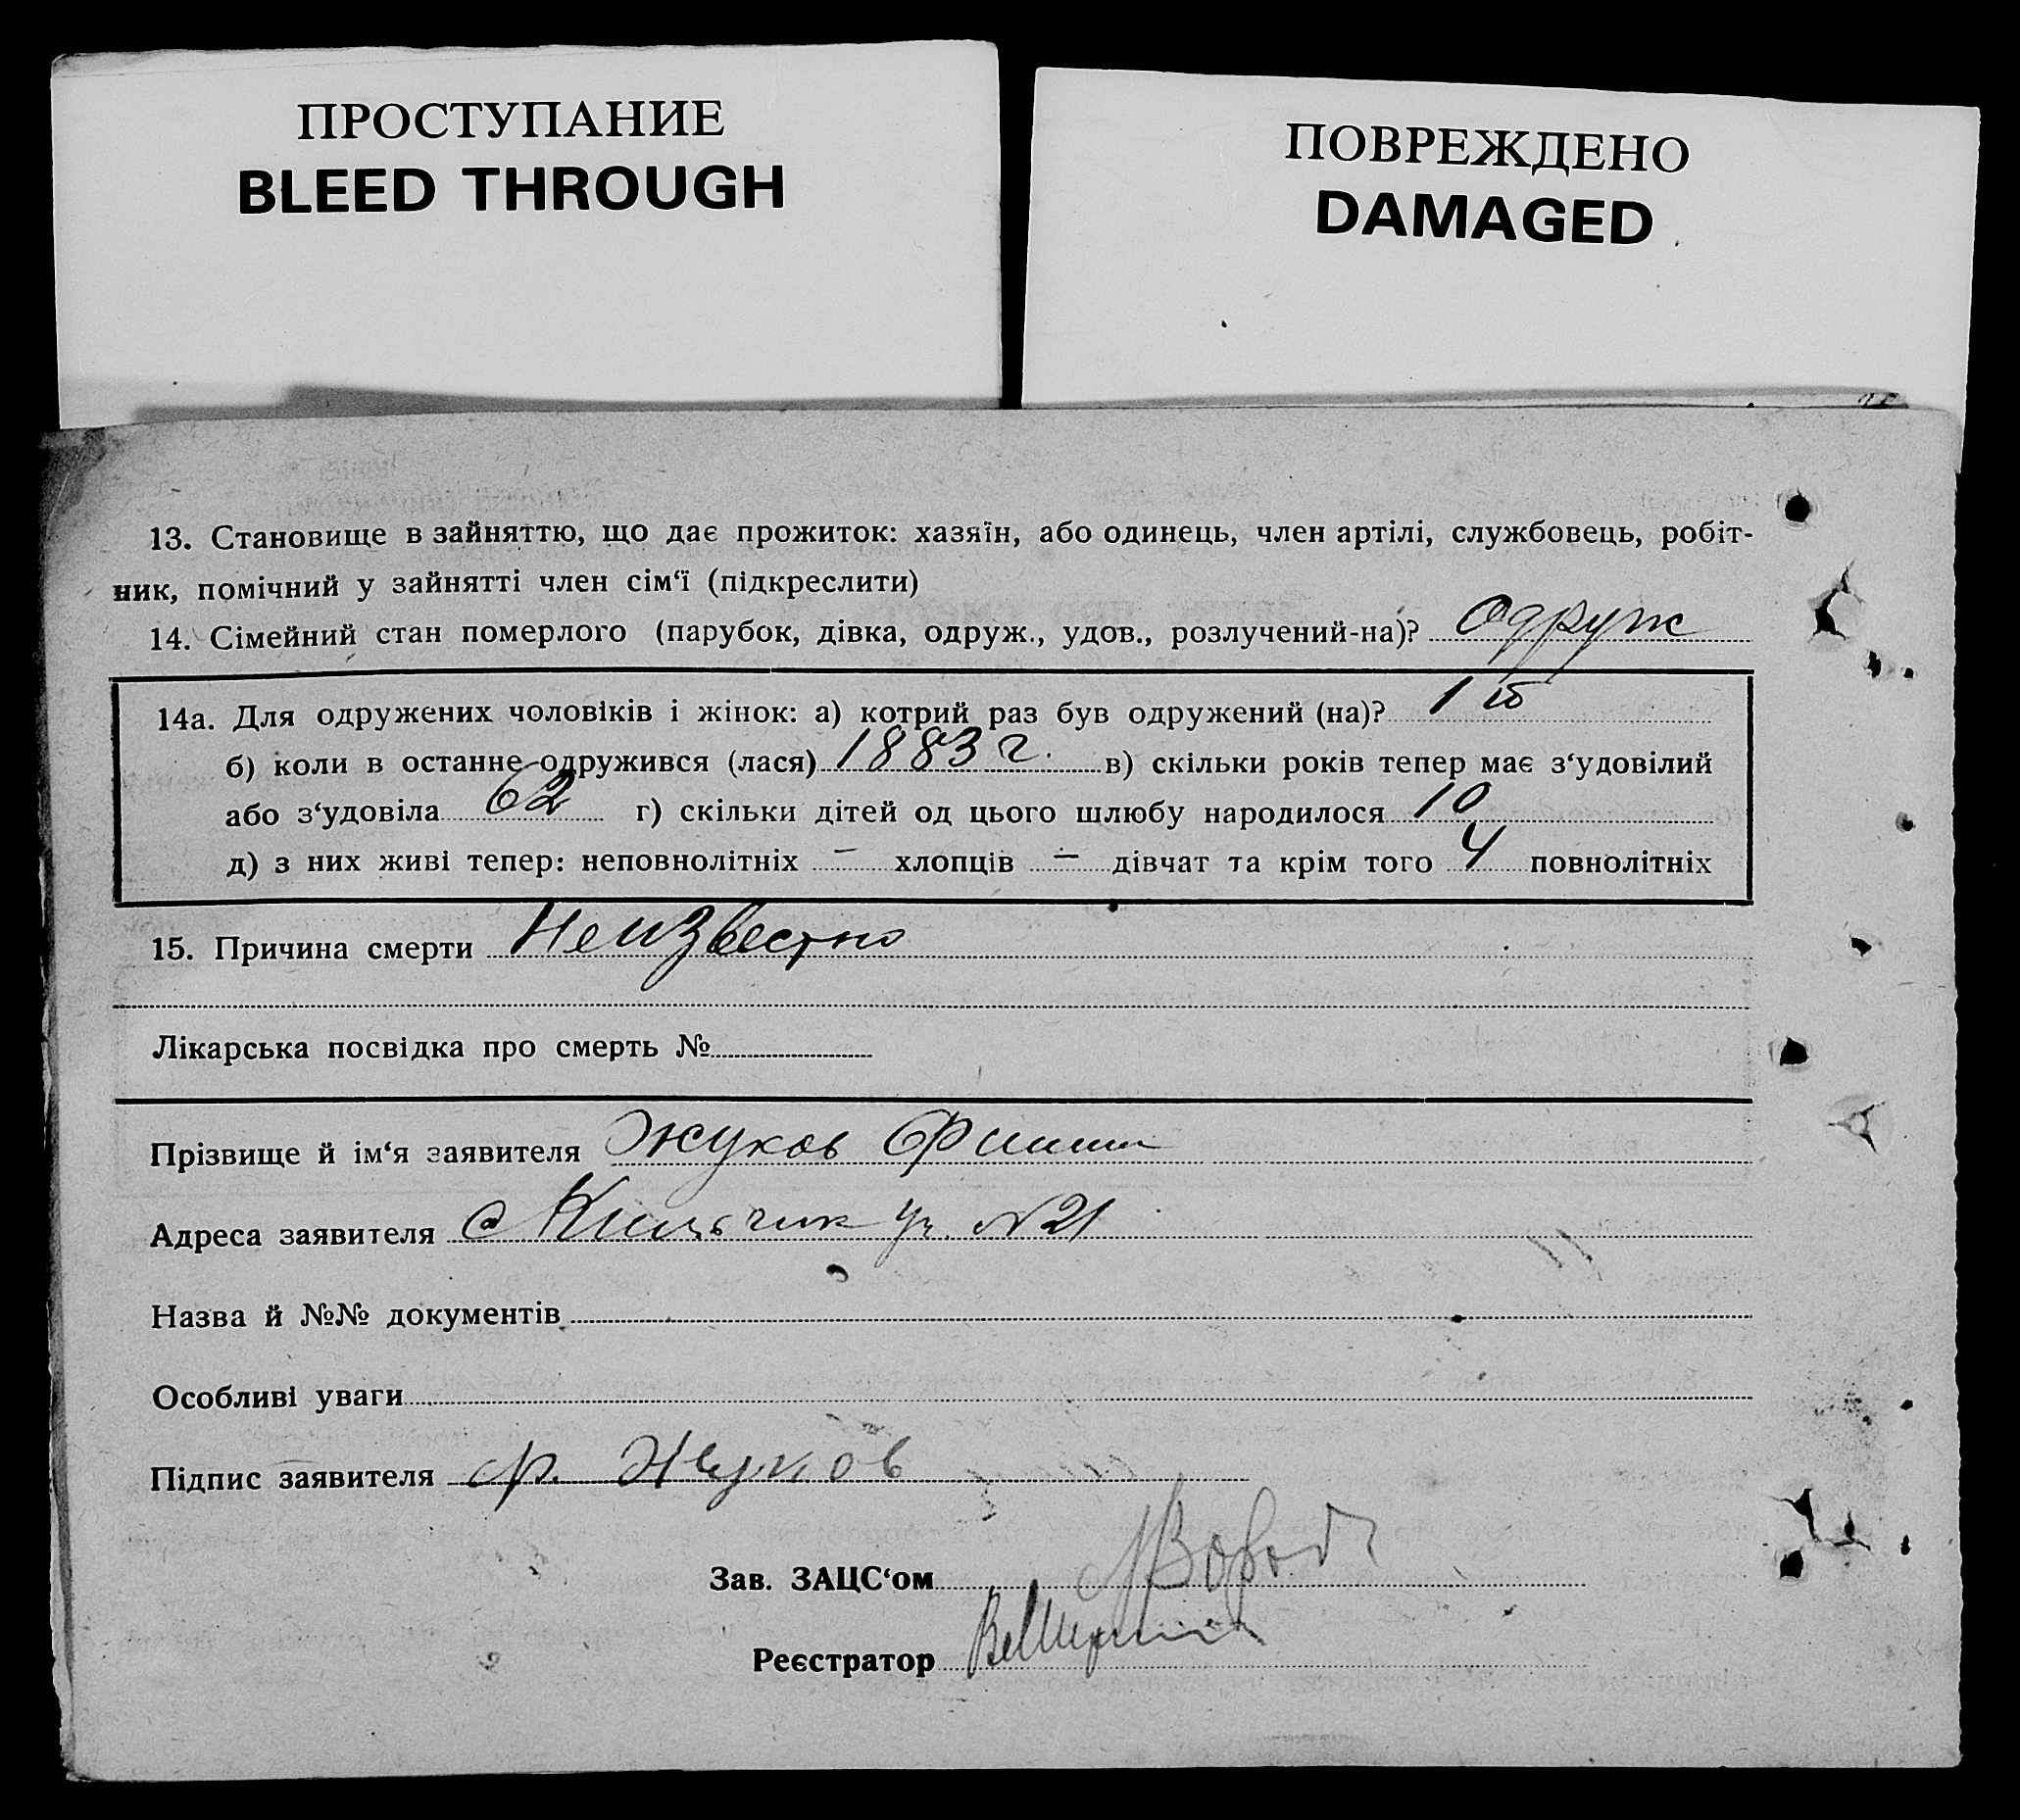 ПРОСТУПАНИЕ
BLEED THROUGH
ПОВРЕЖДЕНО
DAMAGED
13. Становище в зайняттю, що дає прожиток: хазяїн, або одинець, член артілі, службовець, робіт-
ник, помічний у зайнятті член сім‘ї (підкреслити)
14. Сімейний стан померлого (парубок, дівка, одруж., удов., розлучений-на)? Одруж
14а. Для одружених чоловіків і жінок: а) котрий раз був одружений (на)? 1 й
б) коли в останнє одружився (лася) 1883 г. в) скільки років тепер має з‘удовілий
або з‘удовіла 62 г) скільки дітей од цього шлюбу народилося 10
д) з них живі тепер: неповнолітніх – хлопців – дівчат та крім того 4 повнолітніх
15. Причина смерти Неизвестно
Лікарська посвідка про смерть №
Прізвище й ім‘я заявителя Жуков
Адреса заявителя с №21
Назва й №№ документів
Особливі уваги
Підпис заявителя Ф. Жуков
Зав. ЗАЦС‘ом
Реєстратор